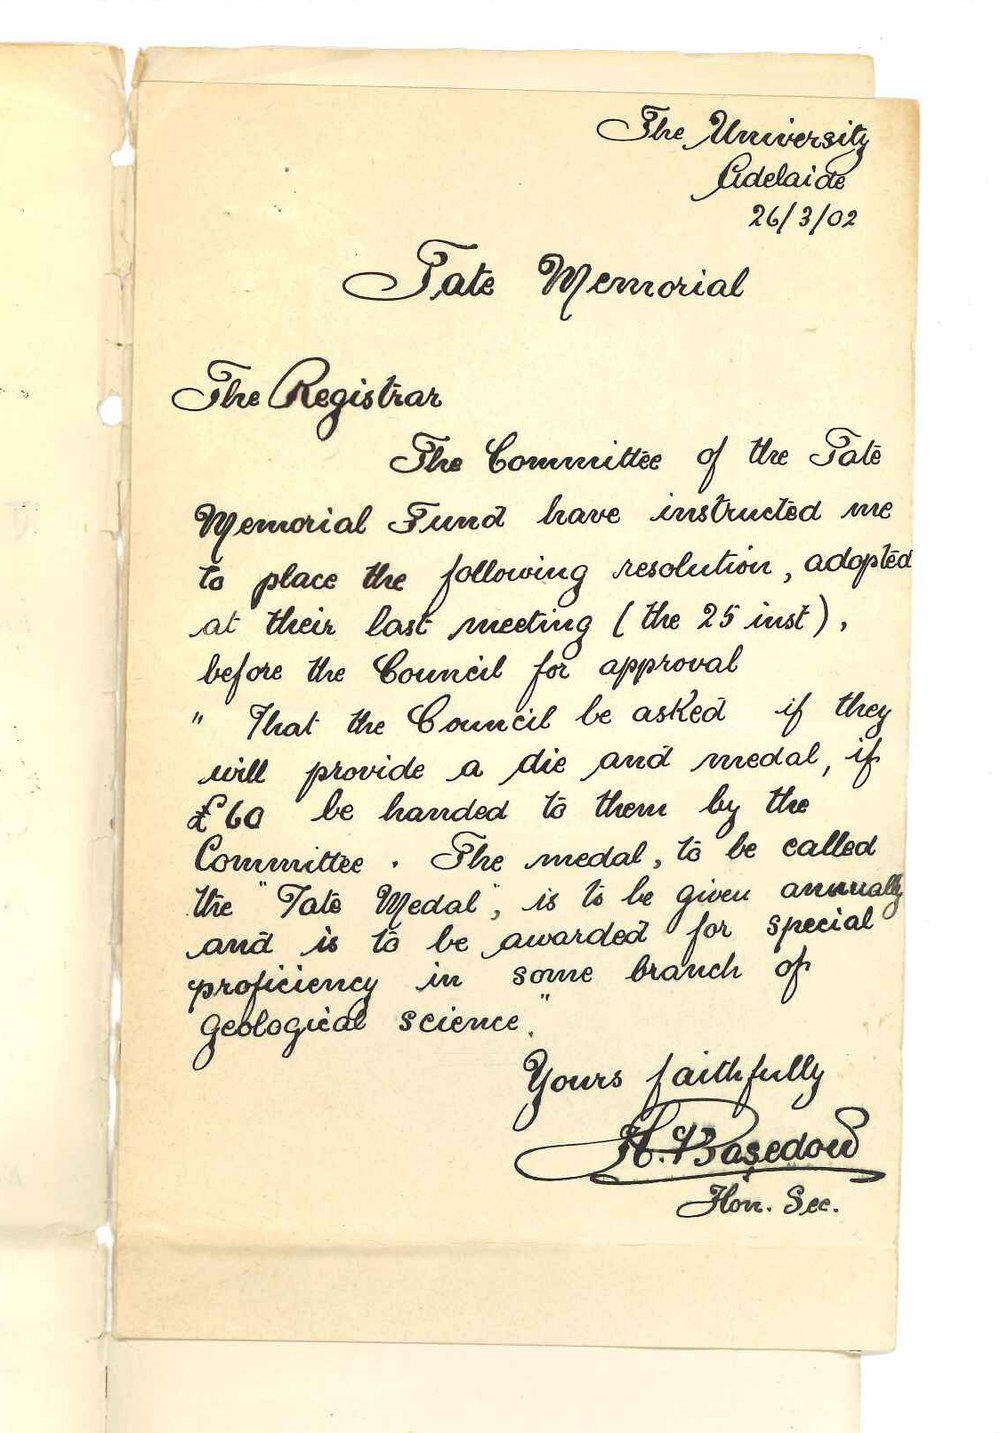 The University
Adelaide
26/3/02
Tate Memorial
The Registrar
The Committee of the Tate
Memorial Fund have instructed me
to place the following resolution, adopted
at their last meeting (the 25 inst),
before the Council for approval
" That the Council be asked if they
will provide a die and medal, if
£60 be handed to them by the
Committee. The medal, to be called
the "Tate Medal", is to be given annually
and is to be awarded for special
proficiency in some branch of
geological science."
Yours faithfully
H. Basedow
Hon. Sec.